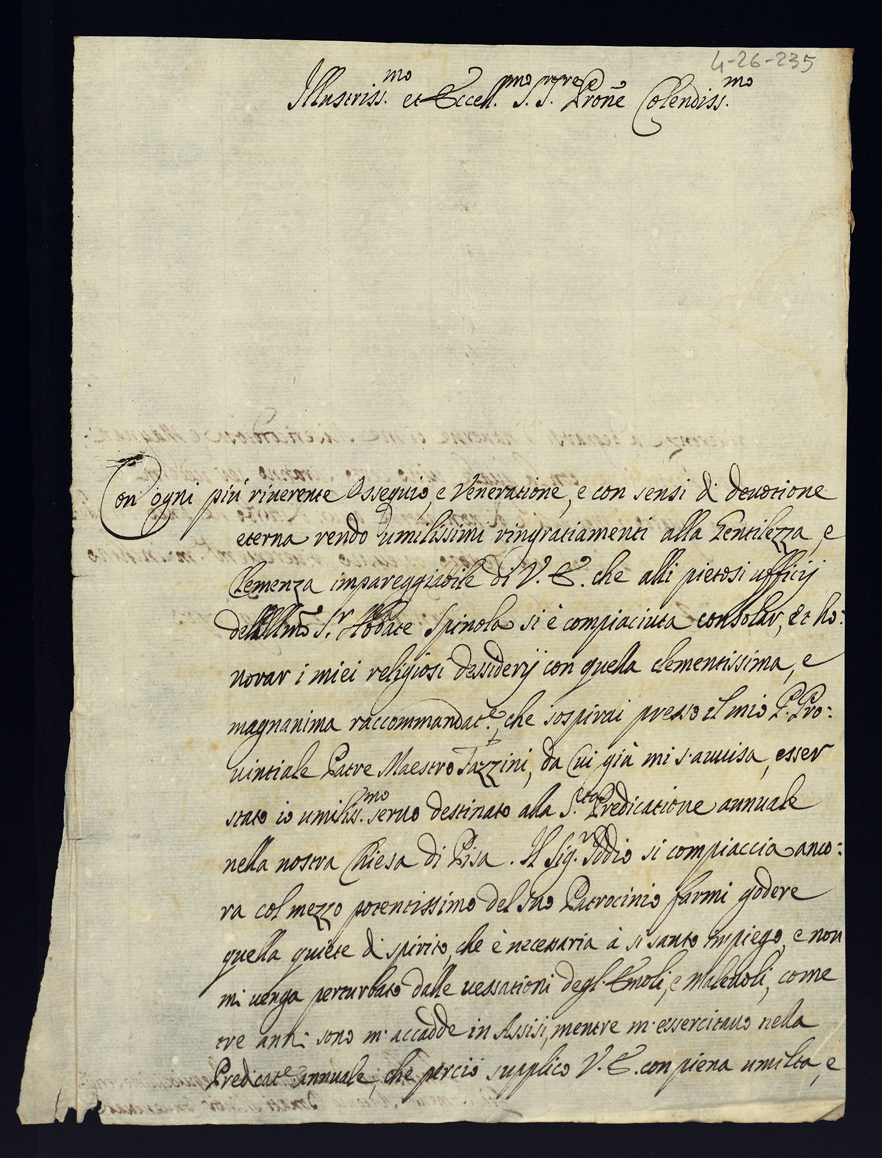 4-26-235
Illustriss.mo et Eccell.mo S.r S.re Prone Colendiss.mo
Con ogni più riverente Ossequio, e Veneratione, e con sensi di devotione
eterna rendo umilissimi ringratiamenti alla Gentilezza, e
Clemenza impareggiabile di V. E. che alli pietosi ufficij
dell'Illmo S.r Abbate Spinola si è compiaciuta consolar, et ho:
norar i miei religiosi desiderij con quella clementissima, e
magnanima raccommandat.e, che sospirai presso el mio P. Pro:
vintiale Patre Maestro Tazzini, da cui già mi s'avvisa, esser
stato io umiliss.mo servo destinato alla S.ta Predicatione annuale
nella nostra Chiesa di Pisa. Il Sig.r Iddio si compiaccia anco:
ra col mezzo potentissimo del suo Patrocinio farmi godere
quella quiete di spirito, che è necessaria à si santo impiego, e non
mi venga perturbato dalle vessationi degl'Emoli, e Malevoli, come
tre anni sono m'accadde in Assisi, mentre m'essercitavo nella
Predicat.e annuale, che perciò supplico V. E. con piena umiltà, e